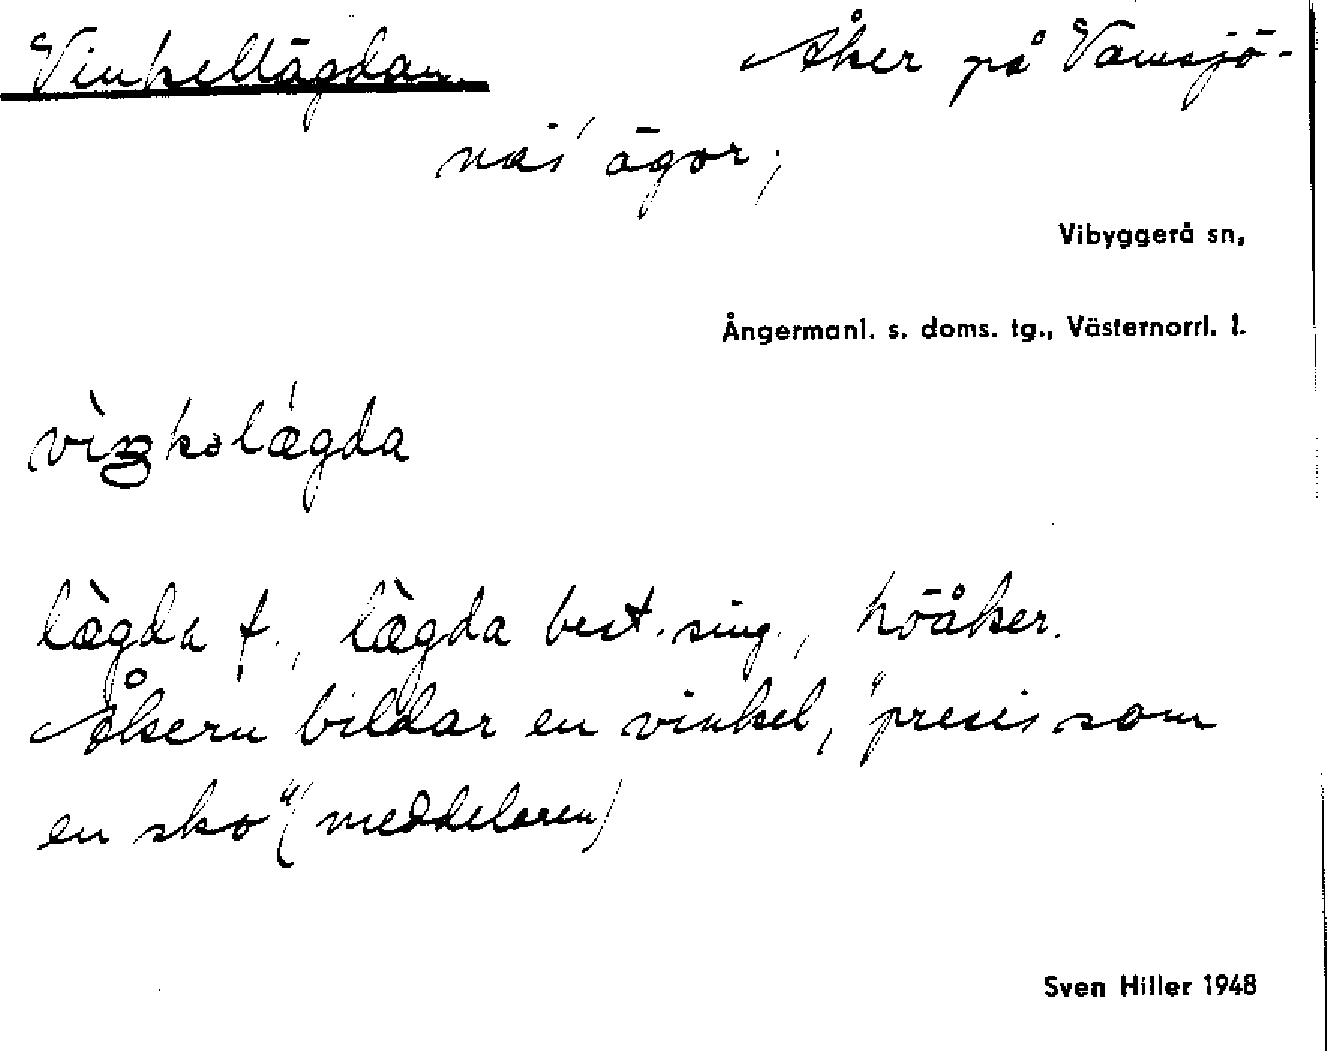 Vinkellägdan. Åker på Vamsjö-
näs' ägor;
Vibyggerå sn,
Ångermanl. s. doms. tg., Västernorrl. l.
vìŋkəlǽgda
lægda f., lægda best. sing., höåker.
Åkern bildar en vinkel, "precis som
en sko" (meddelaren)
Sven Hiller 1948